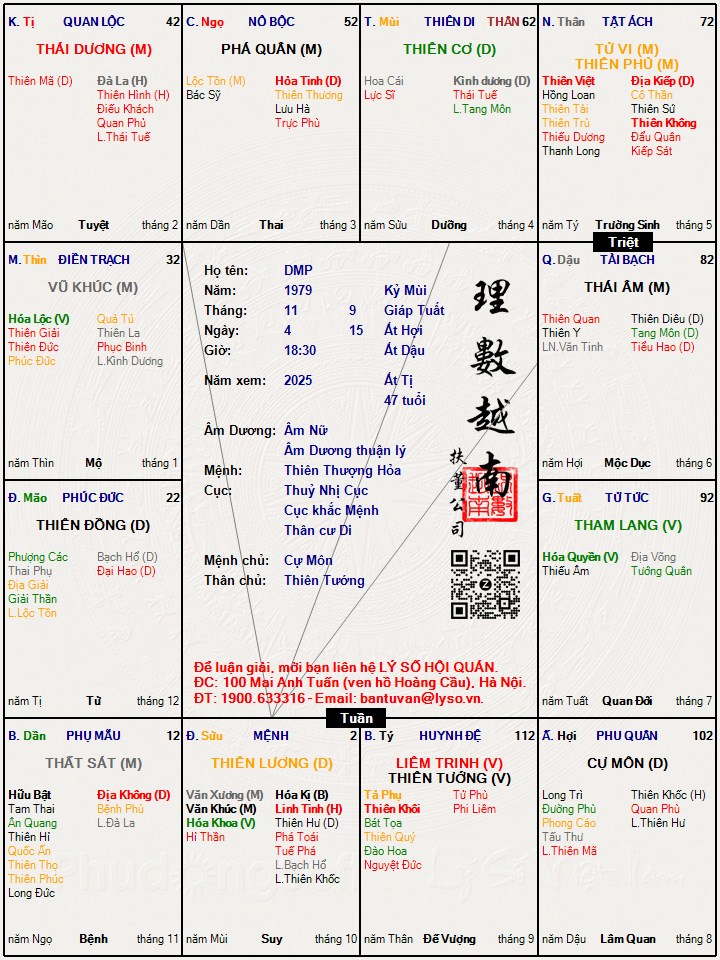 K. Tị QUAN LỘC 42
THÁI DƯƠNG (M)
Thiên Mã (D)
Đà La (H)
Thiên Hình (H)
Điếu Khách
Quan Phủ
L.Thái Tuế
năm Mão Tuyệt tháng 2
C. Ngọ NÔ BỘC 52
PHÁ QUÂN (M)
Lộc Tồn (M)
Bác Sỹ
Hỏa Tinh (D)
Thiên Thương
Lưu Hà
Trực Phù
năm Dần Thai tháng 3
T. Mùi THIÊN DI THÂN 62
THIÊN CƠ (D)
Hoa Cái
Lực Sĩ
Kình dương (D)
Thái Tuế
L.Tang Môn
năm Sửu Dưỡng tháng 4
N. Thân TẬT ÁCH 72
TỬ VI (M)
THIÊN PHỦ (M)
Thiên Việt
Hồng Loan
Thiên Tài
Thiên Trù
Thiếu Dương
Thanh Long
Địa Kiếp (D)
Cô Thần
Thiên Sứ
Thiên Không
Đẩu Quân
Kiếp Sát
năm Tý Trường Sinh tháng 5
Triệt
M. Thìn ĐIỀN TRẠCH 32
VŨ KHÚC (M)
Hóa Lộc (V)
Thiên Giải
Thiên Đức
Phúc Đức
Quả Tú
Thiên La
Phục Binh
L.Kình Dương
năm Thìn Mộ tháng 1
Họ tên: DMP
Năm: 1979 Kỷ Mùi
Tháng: 11 9 Giáp Tuất
Ngày: 4 15 Ất Hợi
Giờ: 18:30 Ất Dậu
Năm xem: 2025 Ất Tị
47 tuổi
Âm Dương: Âm Nữ
Âm Dương thuận lý
Mệnh: Thiên Thượng Hỏa
Cục: Thuỷ Nhị Cục
Cục khắc Mệnh
Thân cư Di
Mệnh chủ: Cự Môn
Thân chủ: Thiên Tướng
理數越南
扶董公司
Để luận giải, mời bạn liên hệ LÝ SỐ HỘI QUÁN.
ĐC: 100 Mai Anh Tuấn (ven hồ Hoàng Cầu), Hà Nội.
ĐT: 1900.633316 - Email: bantuvan@lyso.vn.
Q. Dậu TÀI BẠCH 82
THÁI ÂM (M)
Thiên Quan
Thiên Y
LN.Văn Tinh
Thiên Diêu (D)
Tang Môn (D)
Tiểu Hao (D)
năm Hợi Mộc Dục tháng 6
Đ. Mão PHÚC ĐỨC 22
THIÊN ĐỒNG (D)
Phượng Các
Thai Phụ
Địa Giải
Giải Thần
L.Lộc Tồn
Bạch Hổ (D)
Đại Hao (D)
năm Tị Tử tháng 12
G. Tuất TỬ TỨC 92
THAM LANG (V)
Hóa Quyền (V)
Thiếu Âm
Địa Võng
Tướng Quân
năm Tuất Quan Đới tháng 7
Tuần
B. Dần PHỤ MẪU 12
THẤT SÁT (M)
Hữu Bật
Tam Thai
Ân Quang
Thiên Hỉ
Quốc Ấn
Thiên Thọ
Thiên Phúc
Long Đức
Địa Không (D)
Bệnh Phù
L.Đà La
năm Ngọ Bệnh tháng 11
Đ. Sửu MỆNH 2
THIÊN LƯƠNG (D)
Văn Xương (M)
Văn Khúc (M)
Hóa Khoa (V)
Hỉ Thần
Hóa Kị (B)
Linh Tinh (H)
Thiên Hư (D)
Phá Toái
Tuế Phá
L.Bạch Hổ
L.Thiên Khốc
năm Mùi Suy tháng 10
B. Tý HUYNH ĐỆ 112
LIÊM TRINH (V)
THIÊN TƯỚNG (V)
Tả Phụ
Thiên Khôi
Bát Tọa
Thiên Quý
Đào Hoa
Nguyệt Đức
Tử Phù
Phi Liêm
năm Thân Đế Vượng tháng 9
Ấ. Hợi PHU QUÂN 102
CỰ MÔN (D)
Long Trì
Đường Phù
Phong Cáo
Tấu Thư
L.Thiên Mã
Thiên Khốc (H)
Quan Phù
L.Thiên Hư
năm Dậu Lâm Quan tháng 8